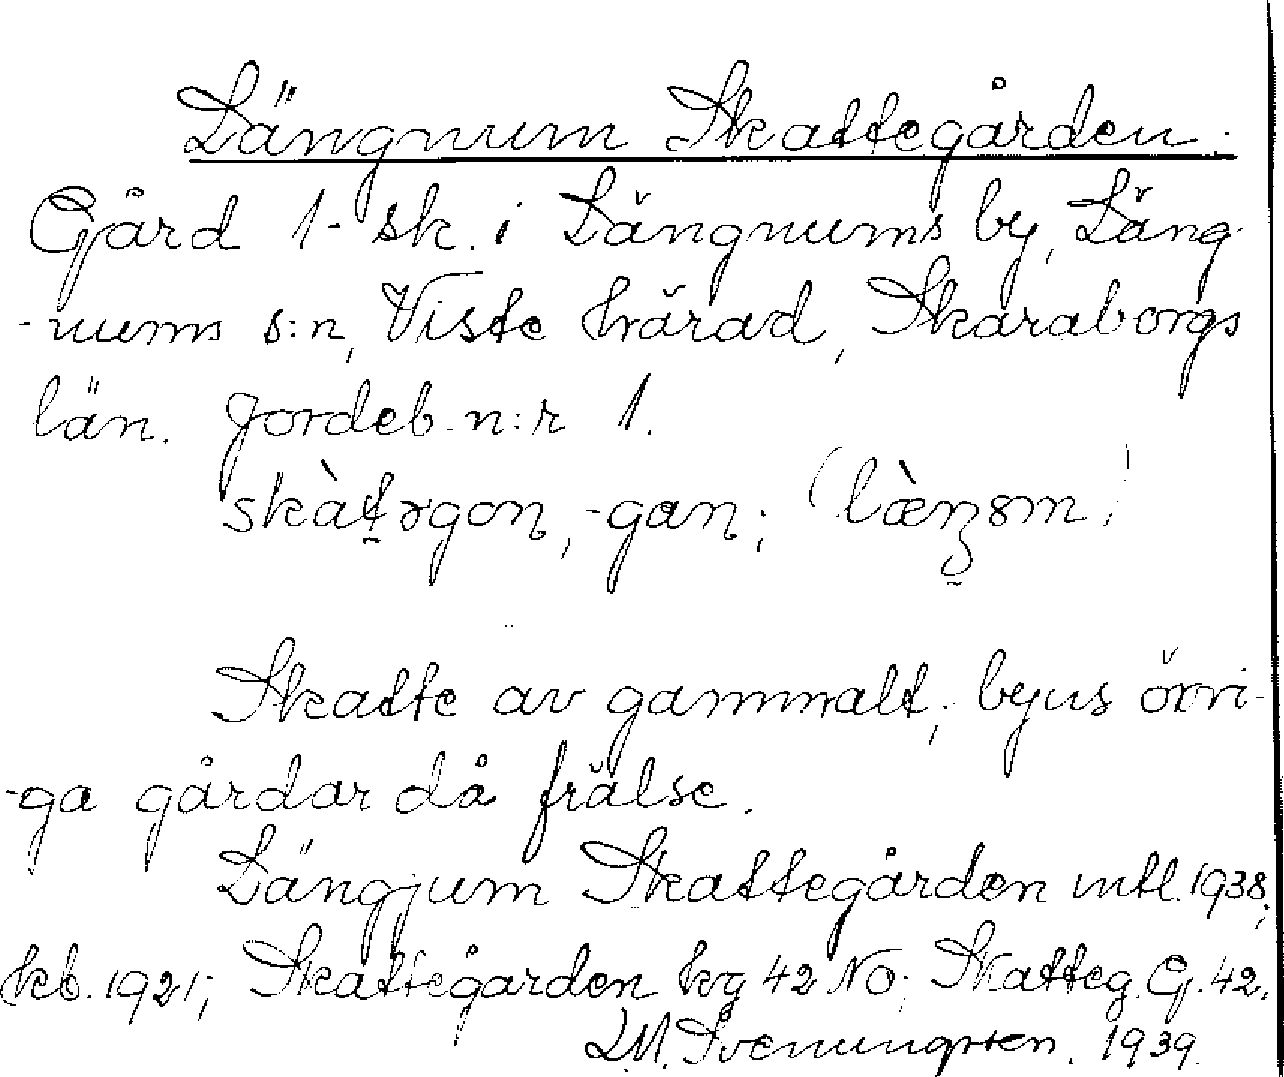 Längnum Skattegården.
Gård 1 sk. i Längnums by, Läng-
-nums s:n, Viste härad, Skaraborgs
län. Jordeb. n:r 1.
skàt̬ǝgon, -gan; (læ̀nʒ̬ɞm)
Skatte av gammalt; byns övri-
-ga gårdar då frälse.
Längjum Skattegården mtl. 1938,
kb. 1921; Skattegården kg 42 NO; Skatteg. G. 42.
Svenungsson. 1939.